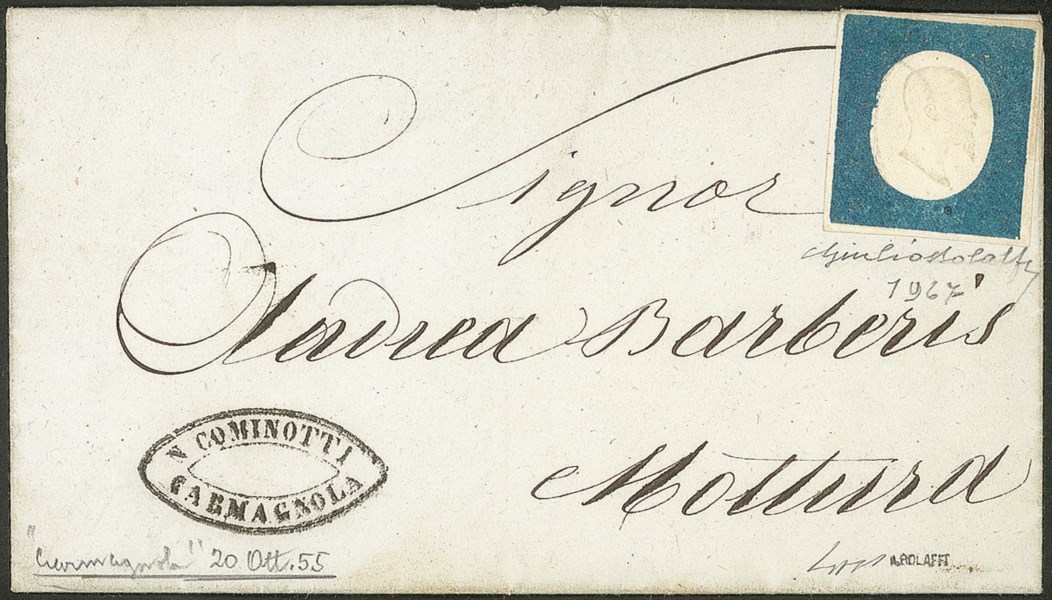 Signor
Giulio Bolaffi
1967
Andrea Barberis
Mottura
N COMINOTTI
CARMAGNOLA
"Carmagnola" 20 Ott. 55
A.BOLAFFI